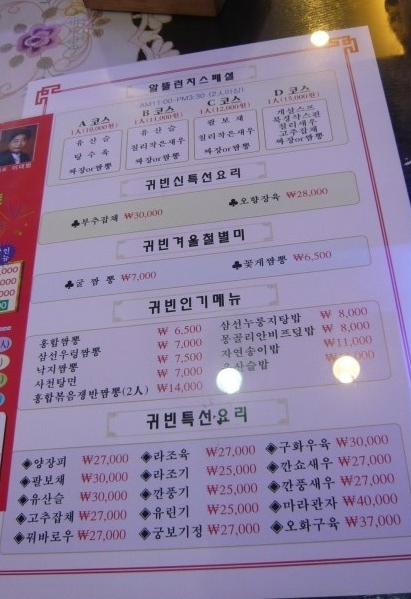 알뜰런치스페셜
AM11:00-PM3:30 (2人이상)
A 코스
1人(10,000원)
유 산 슬
탕 수 육
짜장or짬뽕
B 코스
1人(11,000원)
유 산 슬
칠리작은새우
짜장or짬뽕
C 코스
1人(12,000원)
팔 보 채
칠리작은새우
짜장or짬뽕
D 코스
1人(15,000원)
게살스프
북경작스핀
칠리새우
고추잡채
짜장or짬뽕
귀빈신특선요리
♣부추잡채 ₩30,000
♣오향장육 ₩28,000
귀빈겨울철별미
♣굴 짬 뽕 ₩7,000
♣꽃게짬뽕 ₩6,500
귀빈인기메뉴
홍합짬뽕 ₩ 6,500
삼선우렁짬뽕 ₩ 7,000
낙지짬뽕 ₩ 7,500
사천탕면 ₩ 7,000
홍합볶음쟁반짬뽕(2人) ₩14,000
삼선누룽지탕밥 ₩ 8,000
몽골리안비프덮밥 ₩ 8,000
자연송이밥 ₩11,000
유산슬밥
귀빈특선요리
◈양장피 ₩27,000
◈팔보채 ₩30,000
◈유산슬 ₩30,000
◈고추잡채 ₩27,000
◈꿔바로우 ₩27,000
◈라조육 ₩27,000
◈라조기 ₩25,000
◈깐풍기 ₩25,000
◈유린기 ₩25,000
◈궁보기정 ₩27,000
◈구화우육 ₩30,000
◈깐쇼새우 ₩27,000
◈깐풍새우 ₩27,000
◈마라관자 ₩40,000
◈오화구육 ₩37,000